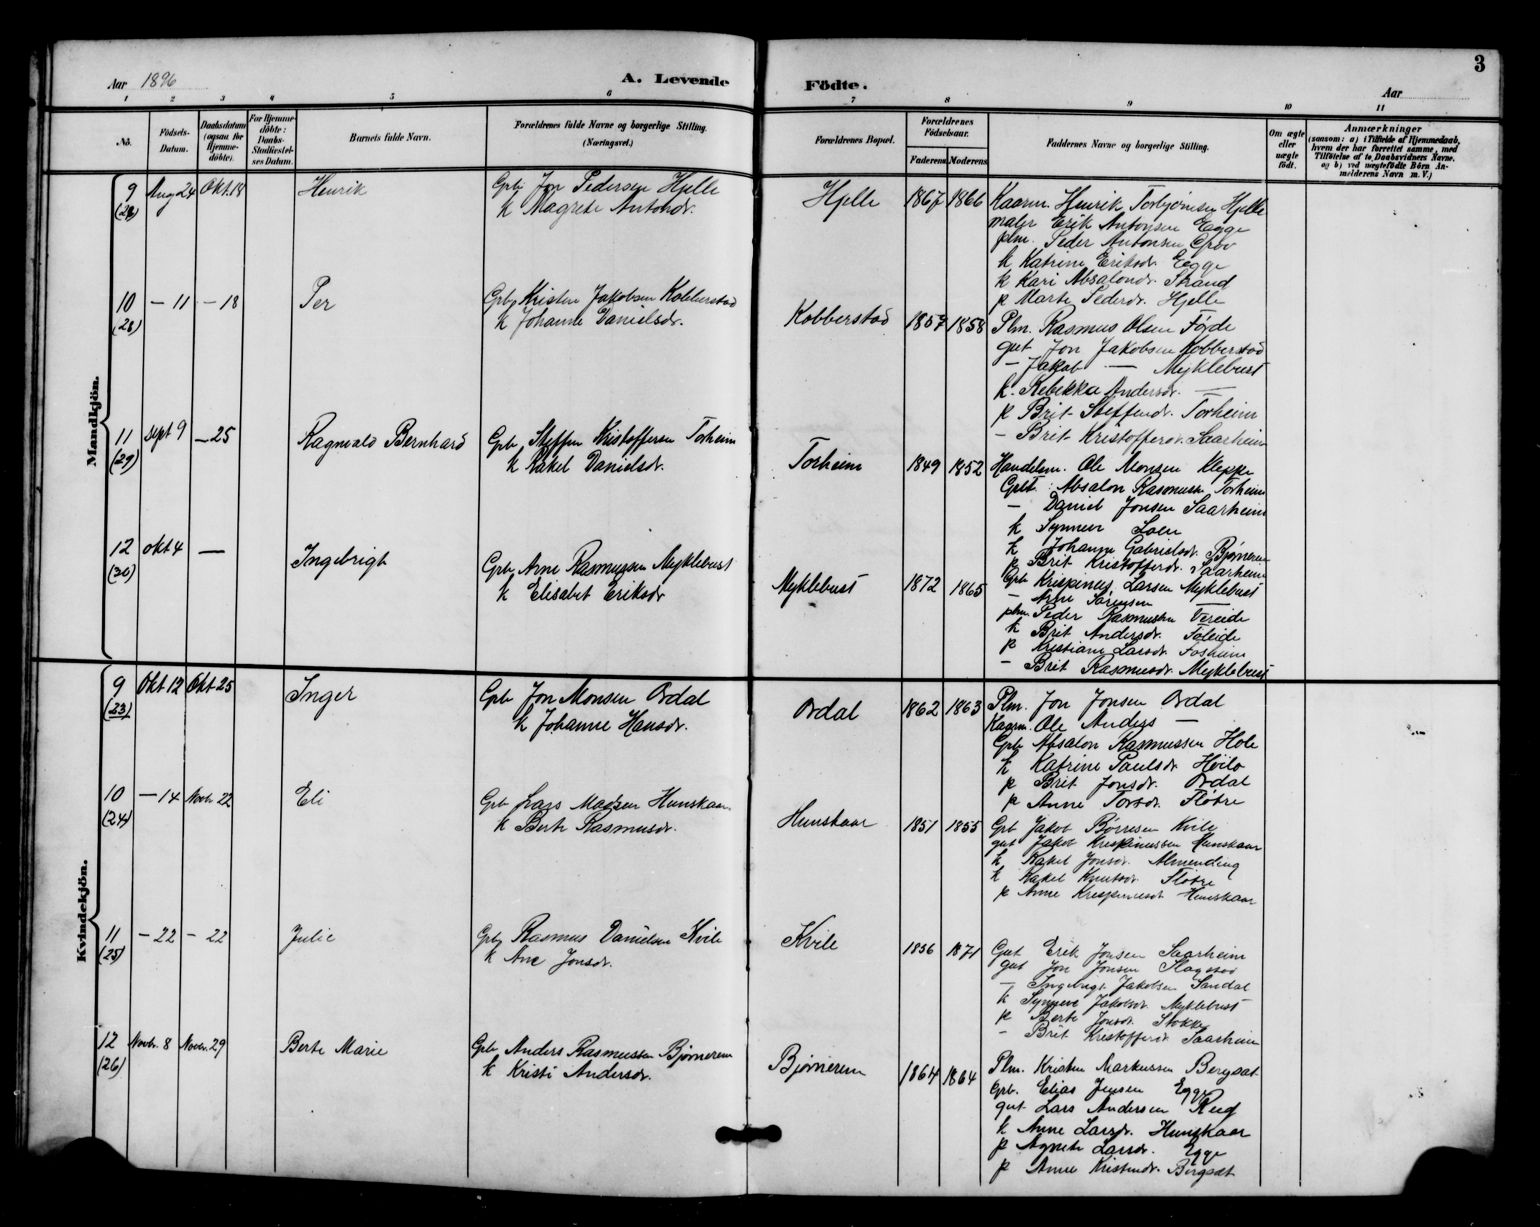 3
Aar 1896
A. Levende Födte.
Aar
1 2 3 4 5 6 7 8 9 10 11
No.
Födsels-Datum.
Daabsdatum (ogsaa for Hjemmedöbte).
For Hjemmedöbte: Daabs-Stadfæstelses Datum.
Barnets fulde Navn.
Forældrenes fulde Navne og borgerlige Stilling. (Næringsvei.)
Forældrenes Bopæl.
Forældrenes Födselsaar.
Faderens Moderens
Faddernes Navne og borgerlige Stilling.
Om ægte eller uægte födt.
Anmærkninger
(saasom: a) i Tilfælde af Hjemmedaab, hvem der har forrettet samme, med Tilföielse af to Daabsvidners Navne, og b) ved uægtefödte Börn Anmelderens Navn m. V.)
Mandkjön.
9 (28) Aug 24 Okt. 18 Henrik
Grb Jon Pedersen Hjelle
k Magrete Antonsdr.
Hjelle 1867 1866
Kaarm. Henrik Torbjørnsen Hjelle
maler Erik Antonsen Egge
plm. Peder Antonsen Grov
k Katrine Eriksdr. Egge
k Kari Absalondr. Strand
p Marte Pedersdr. Hjelle
10 (28) — 11 — 18 Per
Grbr Kristen Jakobsen Kobberstad
k Johanne Danielsdr.
Kobberstad 1857 1858
Plm. Rasmus Olsen Förde
gut Jon Jakobsen Kobberstad
— Jakob — Myklebust
k. Rebekka Andersdr. —
p Brit Steffensdr. Torheim
— Brit Kristofferdr. Saarheim
11 (29) Sept 9 — 25 Ragnvald Bernhard
Grb Steffen Kristoffersen Torheim
k Rakel Danielsdr.
Torheim 1849 1852
Handelsm. Ole Monsen Kleppe
Grbr. Absalon Rasmussen Torheim
— Daniel Jonsen Saarheim
k Synneve Loen
k Johanne Gabrielsdr. Bjørnereim
p Brit Kristofferdr. Saarheim
12 (30) Okt 4 — Ingebrigt
Grb Arne Rasmussen Myklebust
k Elisabet Eriksdr
Myklebust 1872 1865
Grb Krispinus Larsen Myklebust
— Arne Sørensen —
plm. Peder Rasmussen Vereide
k Brit Andersdr. Faleide
p Kristiane Larsdr. Fosheim
— Brit Rasmusdr. Myklebust
Kvindekjön.
9 (23) Okt 12 Okt 25 Inger
Grb Jon Monsen Ordal
k Johanne Hansdr.
Ordal 1862 1863
Plm. Jon Jonsen Ordal
Kaarm. Ole Anders —
Grb Absalon Rasmussen Hole
k Katrine Paulsdr. Hvile
p Brit Jonsdr. Ordal
p Anne Torsdr. Flötre
10 (24) — 14 Novbr 22 Eli
Grb Lars Madsen Hunskaar
k Berte Rasmusdr.
Hunskaar 1851 1855
Grb Jakob Börresen Kvile
gut Jakob Krispinussen Hunskaar
k Rakel Jonsdr. Almending
k Rakel Knutsdr. Flötre
p Anne Krispinusdr. Hunskaar
11 (25) — 22 — 22 Julie
Grbr Rasmus Danielsen Kvile
k Ane Jonsdr.
Kvile 1856 1871
Gut Erik Jonsen Saarheim
gut Jon Jonsen Flagstad
— Ingebrigt Jakobsen Sandal
k Synneve Jakobsdr. Myklebust
p Berte Jonsdr. Stokke
— Brit Kristofferdr. Saarheim
12 (26) Novbr. 8 Novbr. 29 Berte Marie
Grb Anders Rasmussen Bjørnereim
k Kristi Andersdr.
Bjørnereim 1864 1864
Plm. Kristen Markussen Bergsæt
Grb. Elias Jensen Egge
gut Lars Andersen Reed
k Anne Larsdr. Hunskaar
p Agnete Larsdr. Egge
p Anne Kristensdr. Bergsæt